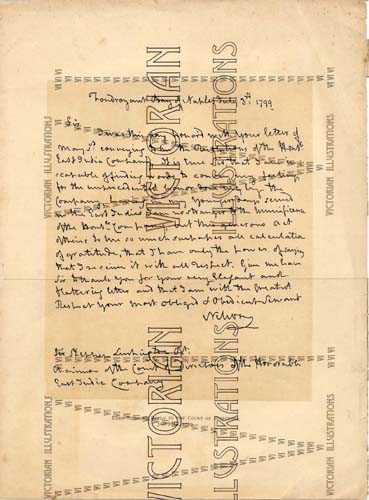 Foudroyant Bay of Naples July 3rd 1799
Sir
I was this day honored with your letter of
May 1st conveying to me the Resolutions of the Honble
East India Company. It is true Sir that I am in-
capable of finding words to convey my feelings
for the unprecedented honor done me by the
Company. Having in my younger days served
in the East Indies I am no stranger to the Munificence
of the Honble Company, but this generous act
of theirs to me so much surpasses all calculation
of gratitude, that I have only the power of saying
that I receive it with all Respect. Give me leave
Sir to thank you for your very Elegant and
flattering letter and that I am with the Greatest
Respect Your most Obliged & Obedient Servant
Nelson
Sir Stephen Lushington Bt.
Chairman of the Court of Directors of the Honorable
East India Company
TO THE COURT OF
VICTORIAN ILLUSTRATIONS
VICTORIAN ILLUSTRATIONS
VICTORIAN ILLUSTRATIONS
VICTORIAN ILLUSTRATIONS
VICTORIAN ILLUSTRATIONS
VICTORIAN ILLUSTRATIONS